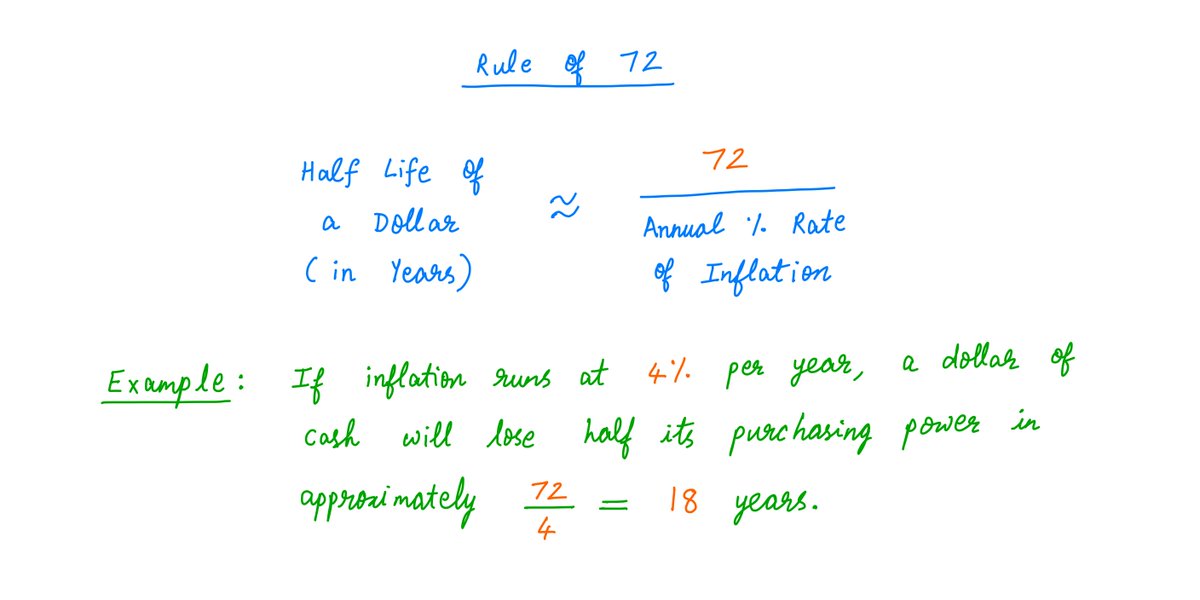 Rule of 72
Half Life of
a Dollar
(in Years)
≈
72
Annual % Rate
of Inflation
Example: If inflation runs at 4% per year, a dollar of
cash will lose half its purchasing power in
approximately 72/4 = 18 years.